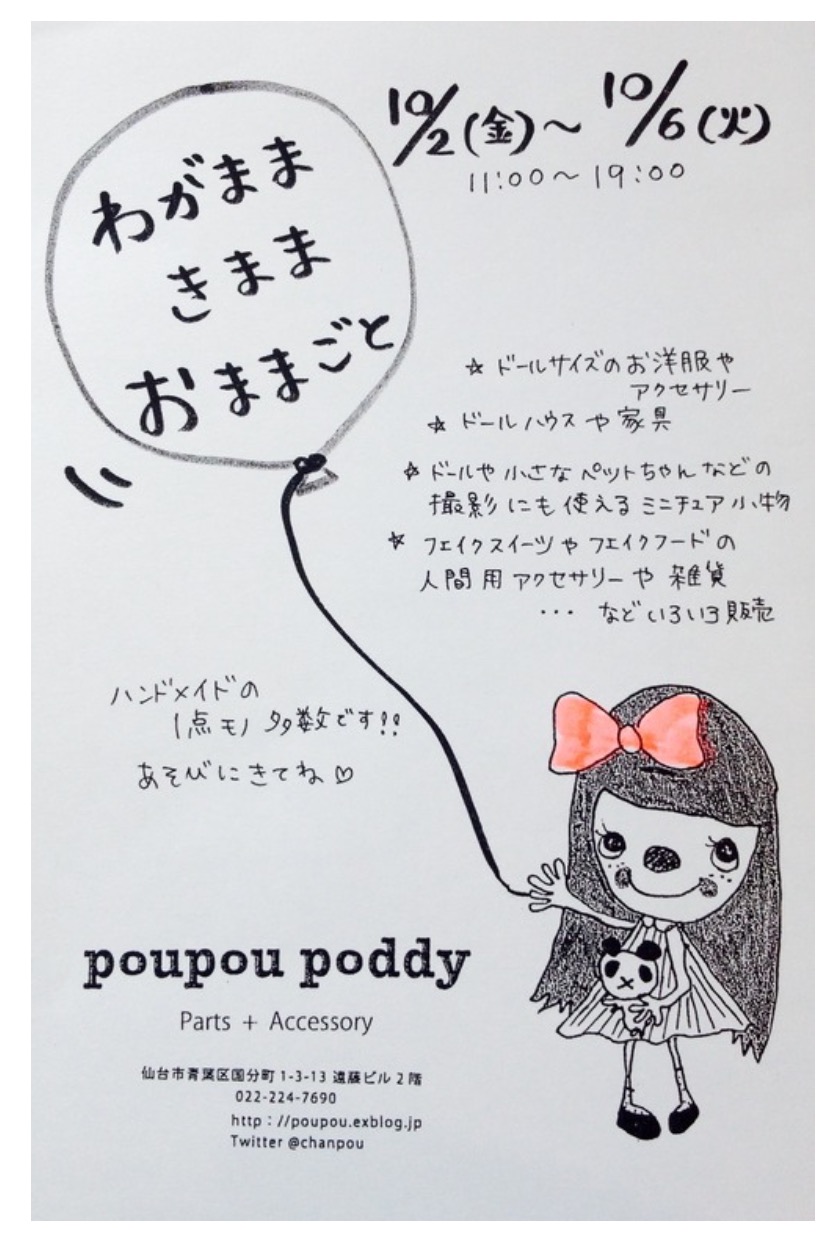 10/2(金)～10/6(火)
11:00～19:00
わがまま
きまま
おままごと
☆ ドールサイズのお洋服や
アクセサリー
☆ ドールハウスや家具
☆ ドールや小さなペットちゃんなどの
撮影にも使えるミニチュア小物
☆ フェイクスイーツやフェイクフードの
人間用アクセサリーや雑貨
・・・ などいろいろ販売
ハンドメイドの
1点モノ多数です!!
あそびにきてね♡
poupou poddy
Parts + Accessory
仙台市青葉区国分町1-3-13 遠藤ビル2階
022-224-7690
http：//poupou.exblog.jp
Twitter @chanpou